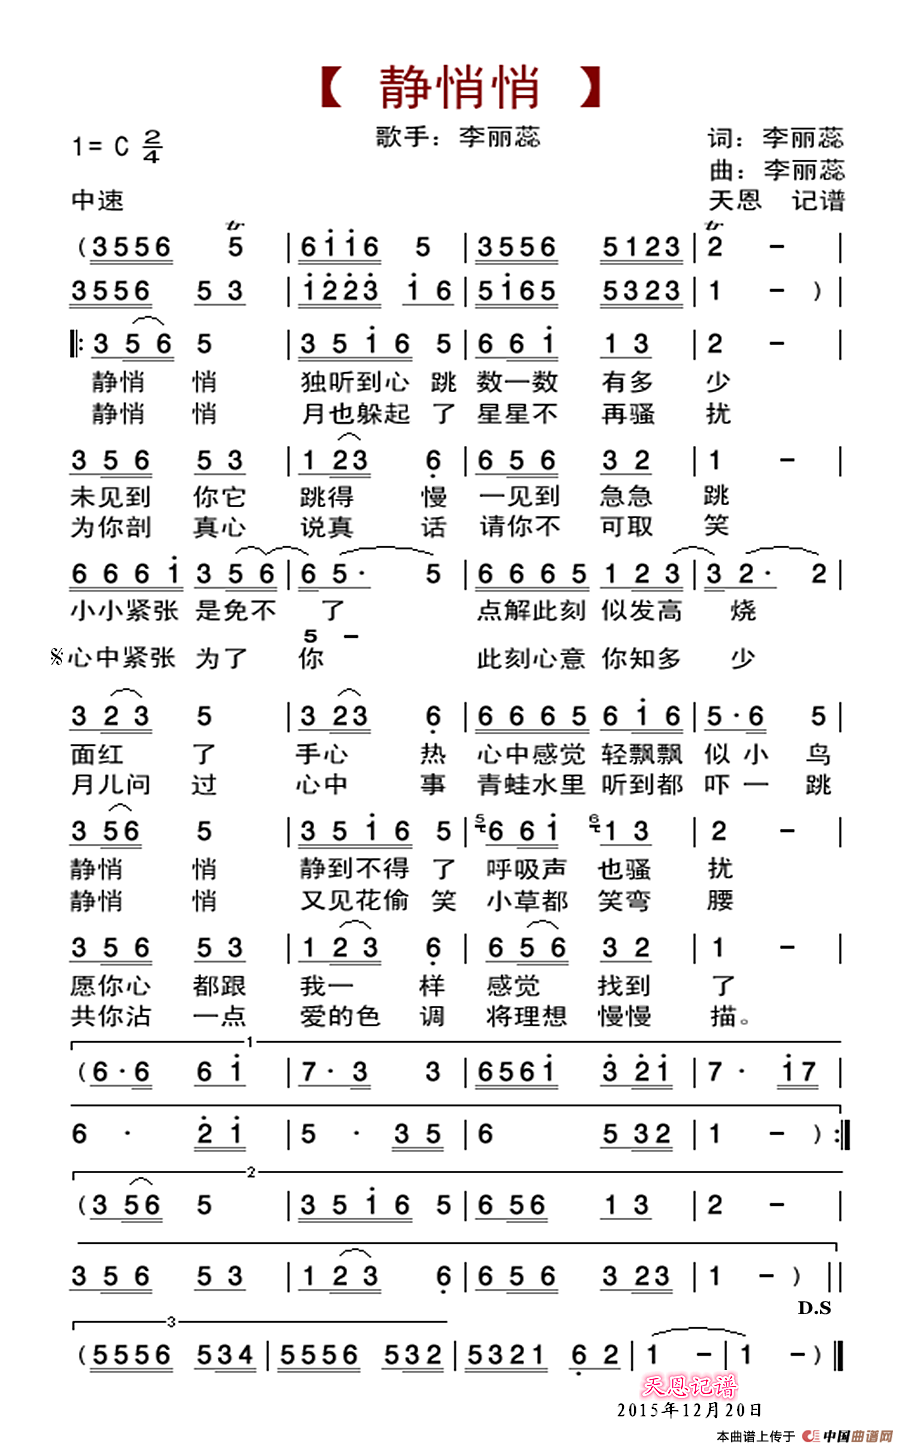 【 静悄悄 】
歌手：李丽蕊 词：李丽蕊
1= C 2/4
曲：李丽蕊
中速 天恩 记谱
tr tr
( 3 5 5 6 5 | 6 i i 6 5 | 3 5 5 6 5 1 2 3 | 2 − |
3 5 5 6 5 3 | i 2 2 3 i 6 | 5 i 6 5 5 3 2 3 | 1 − ) |
‖: 3 5 6 5 | 3 5 i 6 5 | 6 6 i 1 3 | 2 − |
静悄 悄 独听到心 跳 数一数 有多 少
静悄 悄 月也躲起 了 星星不 再骚 扰
3 5 6 5 3 | 1 2 3 6 | 6 5 6 3 2 | 1 − |
未见到 你它 跳得 慢 一见到 急急 跳
为你剖 真心 说真 话 请你不 可取 笑
6 6 6 i 3 5 6 | 6 5 · 5 | 6 6 6 5 1 2 3 | 3 2 · 2 |
小小紧张 是免不 了 点解此刻 似发高 烧
5 −
𝄋 心中紧张 为了 你 此刻心意 你知多 少
3 2 3 5 | 3 2 3 6 | 6 6 6 5 6 i 6 | 5 · 6 5 |
面红 了 手心 热 心中感觉 轻飘飘 似小 鸟
月儿问 过 心中 事 青蛙水里 听到都 吓一 跳
3 5 6 5 | 3 5 i 6 5 | 5 6 6 i 6 1 3 | 2 − |
静悄 悄 静到不得 了 呼吸声 也骚 扰
静悄 悄 又见花偷 笑 小草都 笑弯 腰
3 5 6 5 3 | 1 2 3 6 | 6 5 6 3 2 | 1 − |
愿你心 都跟 我一 样 感觉 找到 了
共你沾 一点 爱的色 调 将理想 慢慢 描。
1
( 6 · 6 6 i | 7 · 3 3 | 6 5 6 i 3 2 i | 7 · i 7 |
6 · 2 i | 5 · 3 5 | 6 5 3 2 | 1 − ) :‖
2
( 3 5 6 5 | 3 5 i 6 5 | 6 5 6 1 3 | 2 − |
3 5 6 5 3 | 1 2 3 6 | 6 5 6 3 2 3 | 1 − ) ||
D.S
3
( 5 5 5 6 5 3 4 | 5 5 5 6 5 3 2 | 5 3 2 1 6 2 | 1 − | 1 − ) ‖
天恩记谱
2015年12月20日
本曲谱上传于 中国曲谱网